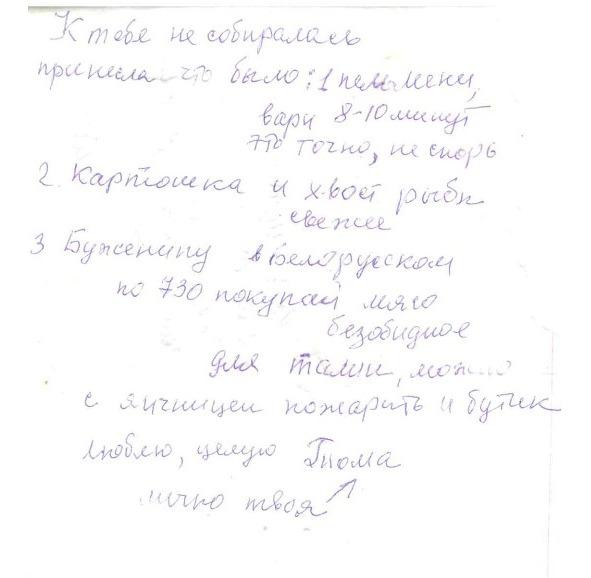 К тебе не собиралась
принесла что было: 1 пельмени,
вари 8-10 минут
это точно, не спорь
2. Картошка и хвост рыбы
свежие
3 Буженину в Белорусском
по 730 покупай мясо
безобидное
для талии, можно
с яичницей пожарить и бутик
люблю, целую Гнома
лично твоя ↗